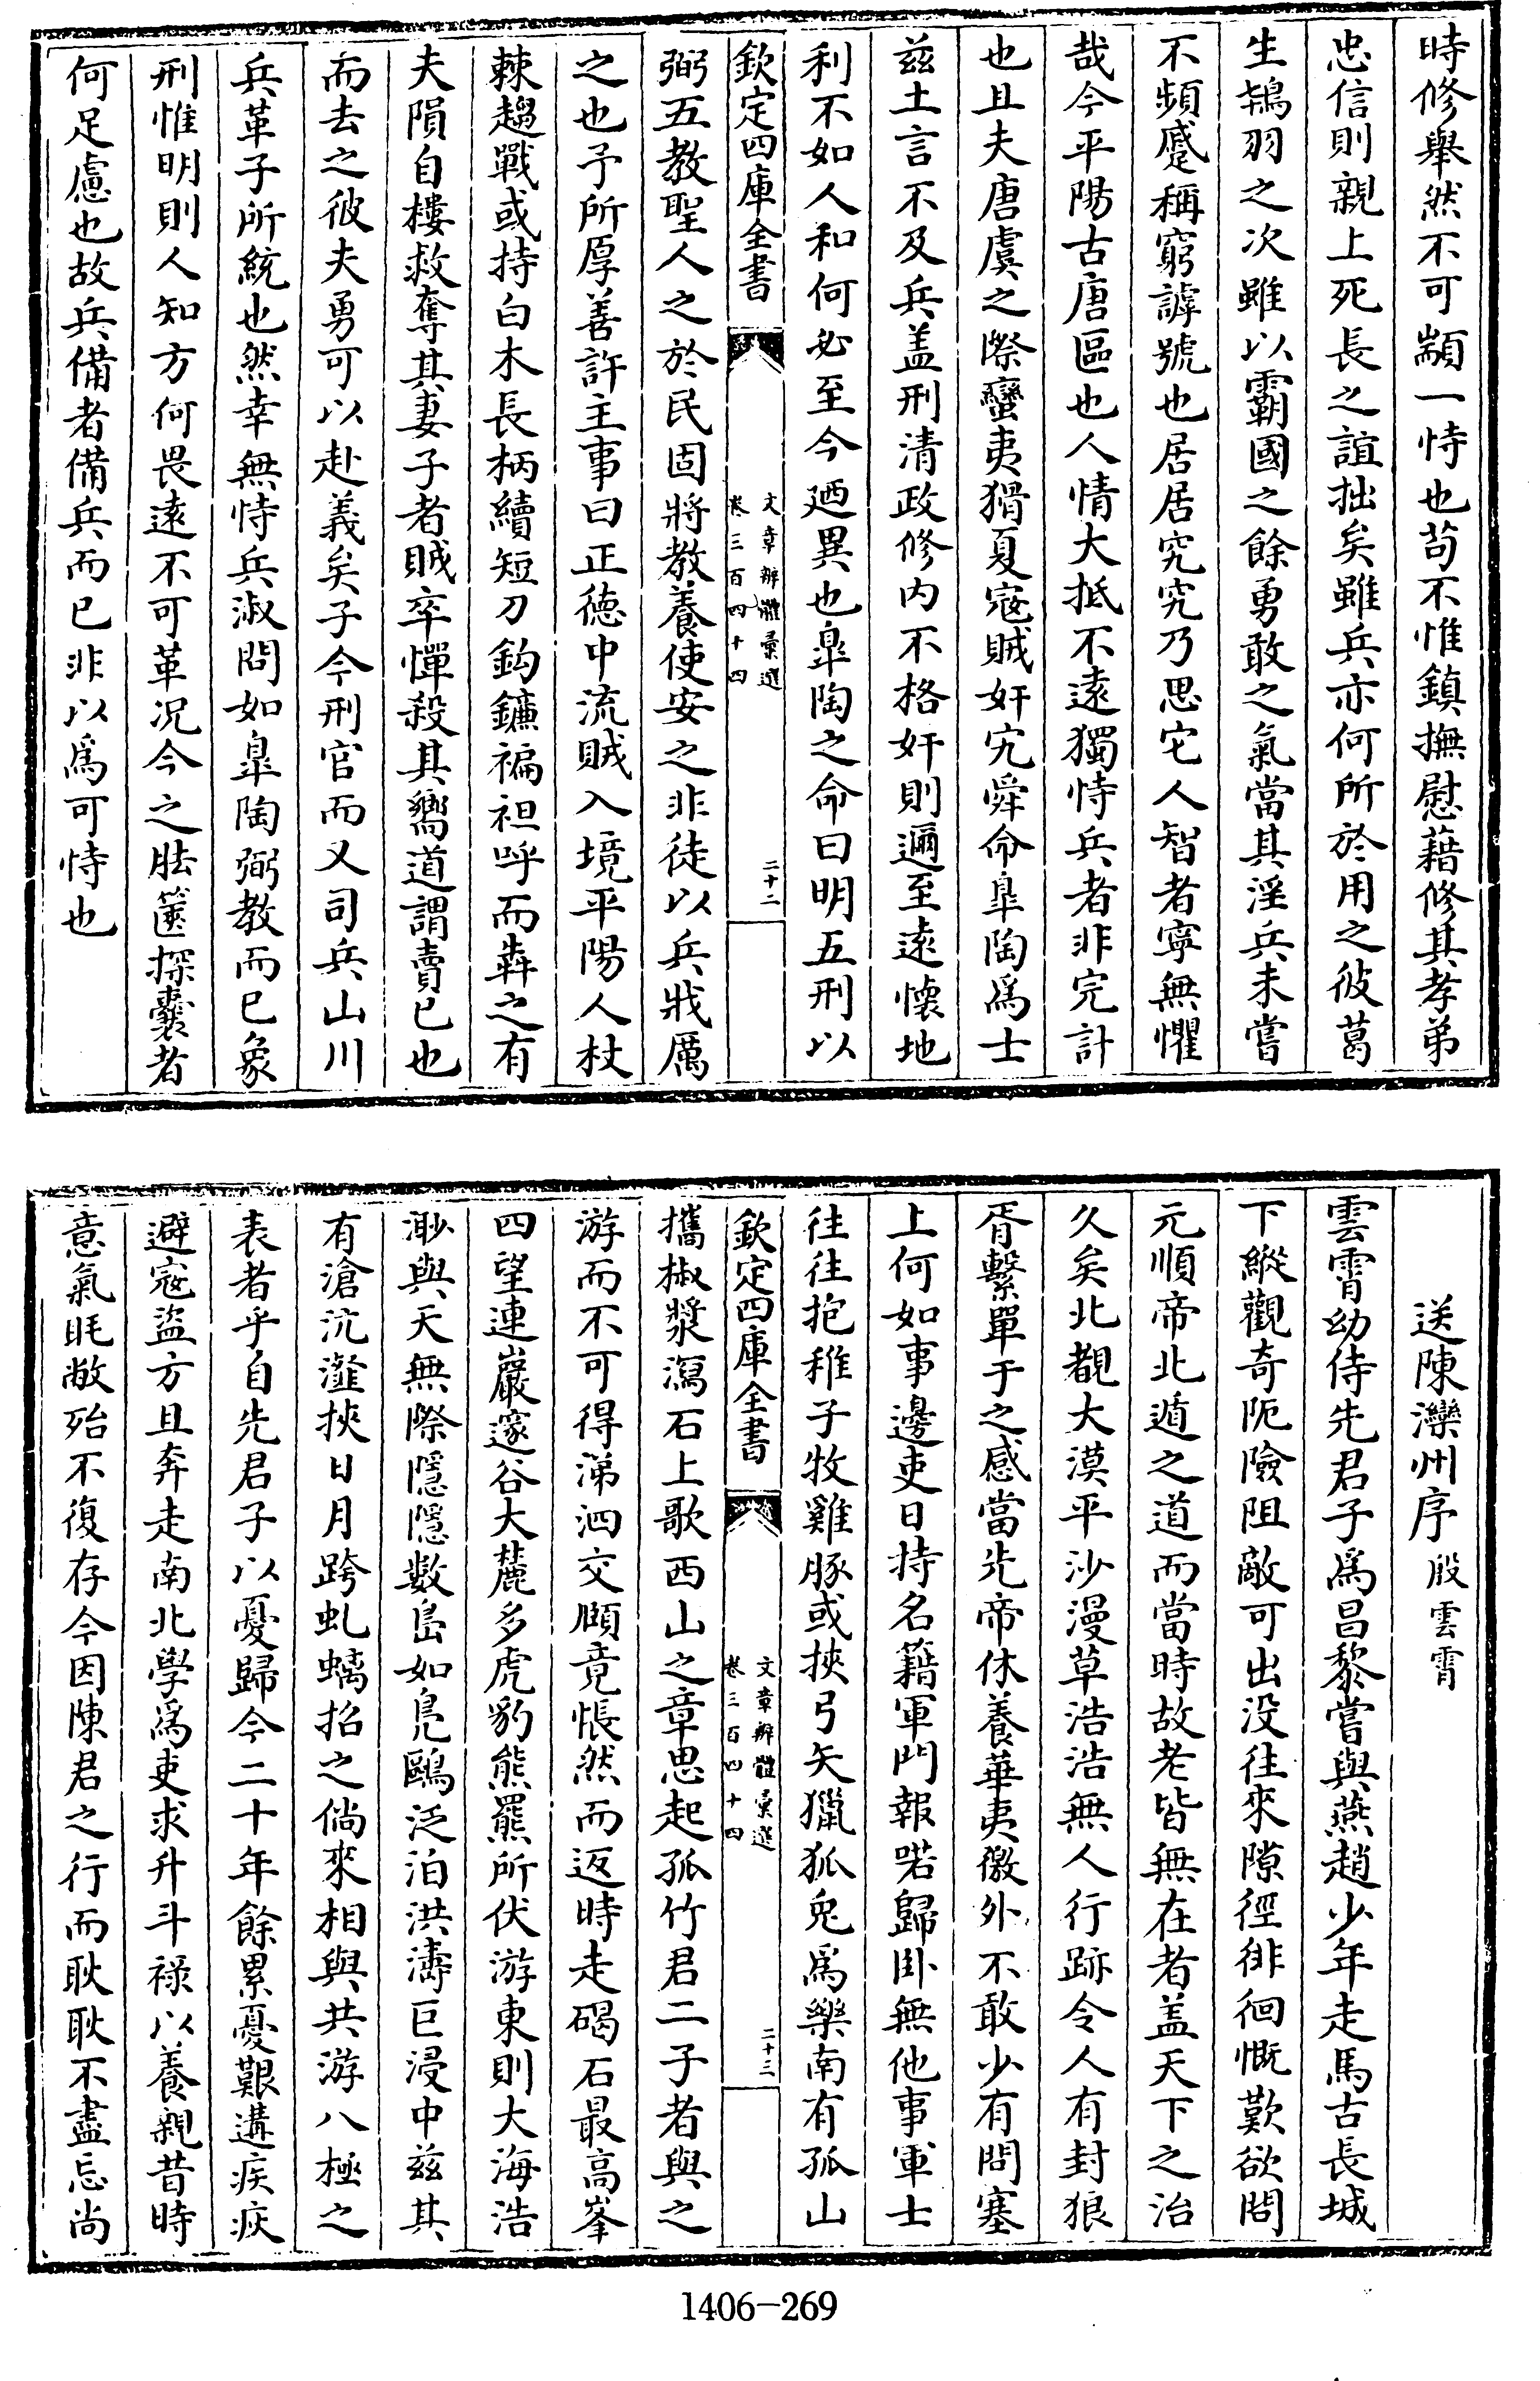 時修舉然不可顓一恃也苟不惟鎮撫慰藉修其孝弟
忠信則親上死長之誼拙矣雖兵亦何所於用之彼葛
生鴇羽之次雖以霸國之餘勇敢之氣當其淫兵未嘗
不頻蹙稱窮謼號也居居究究乃思它人智者寧無懼
哉今平陽古唐區也人情大抵不遠獨恃兵者非完計
也且夫唐虞之際蠻夷猾夏寇賊奸宄舜命皐陶為士
兹土言不及兵盖刑清政修内不格奸則邇至遠懷地
利不如人和何必至今廼異也皐陶之命曰明五刑以
欽定四庫全書
文章辨體彙選
卷三百四十四
二十二
弼五教聖人之於民固將教養使安之非徒以兵戕厲
之也予所厚善許主事曰正徳中流賊入境平陽人杖
棘趨戰或持白木長柄續短刀鈎鐮褊袒呼而犇之有
夫隕自樓救奪其妻子者賊卒憚殺其嚮道謂賣已也
而去之彼夫勇可以赴義矣子今刑官而又司兵山川
兵革子所統也然幸無恃兵淑問如皐陶弼教而已象
刑惟明則人知方何畏遠不可革况今之胠篋探囊者
何足慮也故兵備者備兵而已非以為可恃也
送陳灤州序 殷雲霄
雲霄幼侍先君子為昌黎嘗與燕趙少年走馬古長城
下縱觀奇阨險阻敵可出没往來隙徑徘徊慨歎欲問
元順帝北遁之道而當時故老皆無在者盖天下之治
久矣北覩大漠平沙漫草浩浩無人行跡令人有封狼
胥繫單于之感當先帝休養華夷徼外不敢少有問塞
上何如事邊吏日持名籍軍門報喏歸卧無他事軍士
往往抱稚子牧雞豚或挾弓矢獵狐兎為樂南有孤山
欽定四庫全書
文章辨體彙選
卷三百四十四
二十三
攜椒漿瀉石上歌西山之章思起孤竹君二子者與之
游而不可得涕泗交頤竟悵然而返時走碣石最高峯
四望連巖邃谷大麓多虎豹熊羆所伏游東則大海浩
渺與天無際隱隱數島如鳧鷗泛泊洪濤巨浸中兹其
有滄沆瀣挾日月跨虬螭招之倘來相與共游八極之
表者乎自先君子以憂歸今二十年餘累憂艱遘疾疢
避寇盜方且奔走南北學為吏求升斗禄以養親昔時
意氣眊敝殆不復存今因陳君之行而耿耿不盡忘尚
1406-269